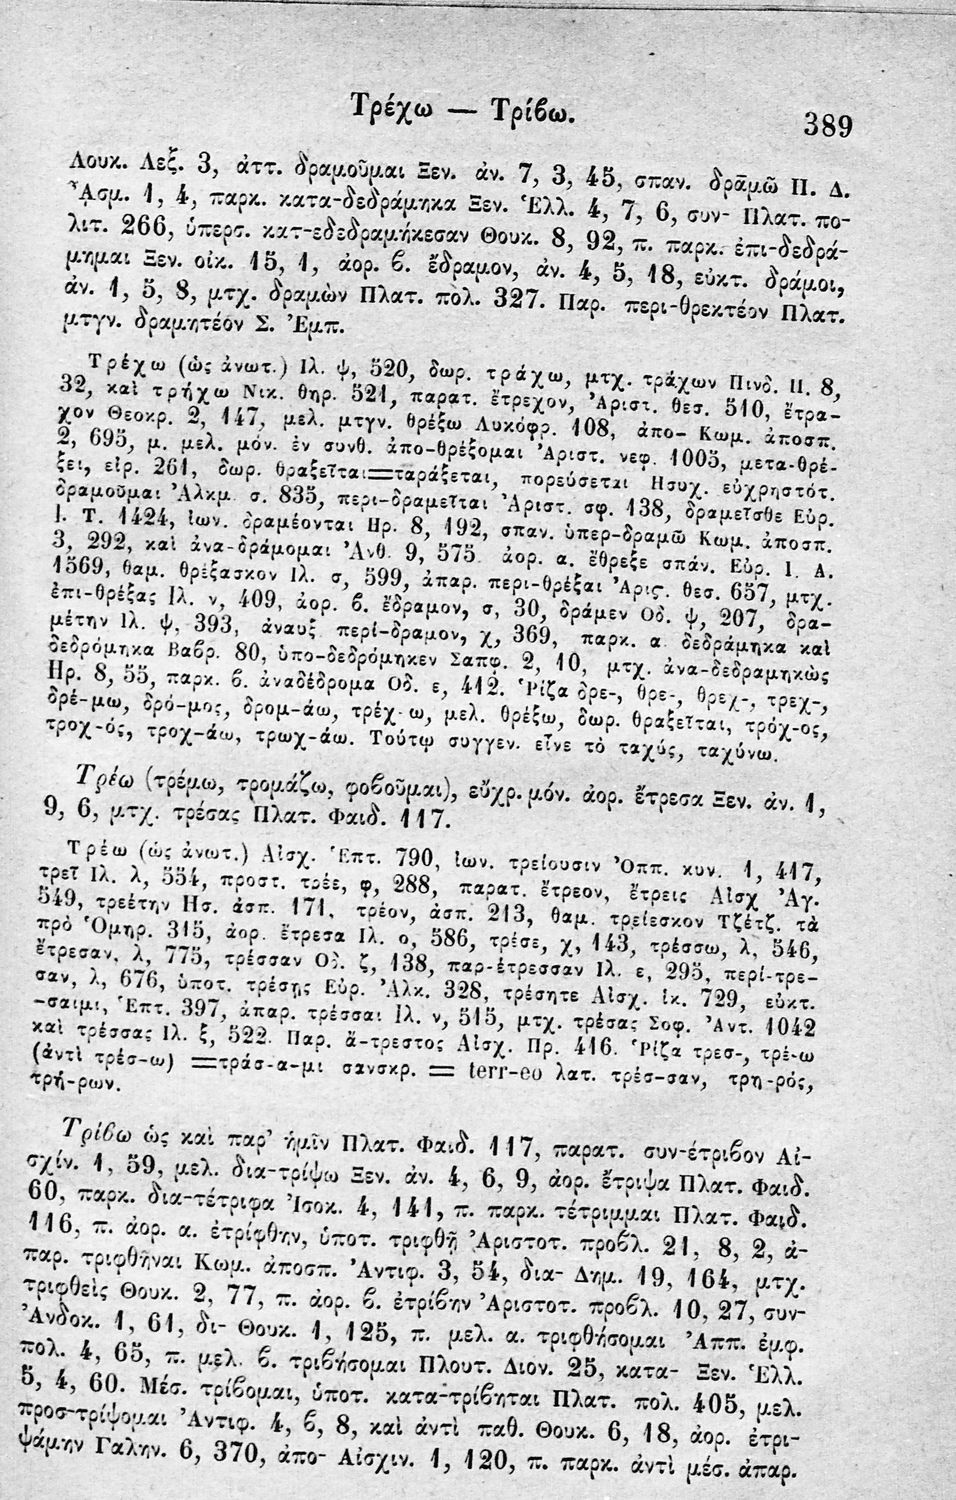 Τρέχω — Τρίβω.
389
Λουκ. Λεξ. 3, ἀττ. δραμοῦμαι Ξεν. ἀν. 7, 3, 45, σπαν. δραμῶ Π. Δ.
Ἆσμ. 1, 4, παρκ. κατα-δεδράμηκα Ξεν. Ἑλλ. 4, 7, 6, συν- Πλατ. πο-
λιτ. 266, ὑπερσ. κατ-εδεδραμήκεσαν Θουκ. 8, 92, π. παρκ. ἐπι-δεδρά-
μημαι Ξεν. οἰκ. 15, 1, ἀορ. β. ἔδραμον, ἀν. 4, 5, 18, εὐκτ. δράμοι,
ἀν. 1, 5, 8, μτχ. δραμὼν Πλατ. πολ. 327. Παρ. περι-θρεκτέον Πλατ.
μτγν. δραμητέον Σ. Ἐμπ.
Τρέχω (ὡς ἀνωτ.) Ιλ. ψ, 520, δωρ. τράχω, μτχ. τράχων Πινδ. Π. 8,
32, καὶ τρήχω Νικ. θηρ. 521, παρατ. ἔτρεχον, Ἀριστ. θεσ. 510, ἔτρα-
χον Θεοκρ. 2, 147, μελ. μτγν. θρέξω Λυκόφρ. 108, ἀπο- Κωμ. ἀποσπ.
2, 695, μ. μελ. μόν. ἐν συνθ. ἀπο-θρέξομαι Ἀριστ. νεφ. 1005, μετα-θρέ-
ξει, εἰρ. 261, δωρ. θραξεῖται=ταράξεται, πορεύσεται Ησυχ. εὐχρηστότ.
δραμοῦμαι Ἀλκμ. σ. 835, περι-δραμεῖται Ἀριστ. σφ. 138, δραμεῖσθε Εὐρ.
Ι. Τ. 1424, ἰων. δραμέονται Ηρ. 8, 192, σπαν. ὑπερ-δραμῶ Κωμ. ἀποσπ.
3, 292, καὶ ἀνα-δράμομαι Ἀνθ. 9, 575. ἀορ. α. ἔθρεξε σπάν. Εὐρ. Ι. Α.
1569, θαμ. θρέξασκον Ιλ. σ, 599, ἀπαρ. περι-θρέξαι Ἀρις. θεσ. 657, μτχ.
ἐπι-θρέξας Ιλ. ν, 409, ἀορ. β. ἔδραμον, σ, 30, δράμεν Οδ. ψ, 207, δρα-
μέτην Ιλ. ψ, 393, ἀναυξ. περί-δραμον, χ, 369, παρκ. α. δεδράμηκα καὶ
δεδρόμηκα Βαβρ. 80, ὑπο-δεδρόμηκεν Σαπφ. 2, 10, μτχ. ἀνα-δεδραμηκὼς
Ηρ. 8, 55, παρκ. β. ἀναδέδρομα Οδ. ε, 412. Ῥίζα δρε-, θρε-, θρεχ-, τρεχ-,
δρέ-μω, δρό-μος, δρομ-άω, τρέχ-ω, μελ. θρέξω, δωρ. θραξεῖται, τρόχ-ος,
τροχ-ός, τροχ-άω, τρωχ-άω. Τούτῳ συγγεν. εἶνε τὸ ταχύς, ταχύνω.
Τρέω (τρέμω, τρομάζω, φοβοῦμαι), εὔχρ. μόν. ἀορ. ἔτρεσα Ξεν. ἀν. 1,
9, 6, μτχ. τρέσας Πλατ. Φαιδ. 117.
Τρέω (ὡς ἀνωτ.) Αἰσχ. Ἑπτ. 790, ἰων. τρείουσιν Ὀππ. κυν. 1, 417,
τρεῖ Ιλ. λ, 554, προστ. τρέε, φ, 288, παρατ. ἔτρεον, ἔτρεις Αἰσχ Ἀγ.
549, τρεέτην Ησ. ἀσπ. 171, τρέον, ἀσπ. 213, θαμ. τρείεσκον Τζέτζ. τὰ
πρὸ Ὁμηρ. 315, ἀορ. ἔτρεσα Ιλ. ο, 586, τρέσε, χ, 143, τρέσσω, λ, 546,
ἔτρεσαν, λ, 775, τρέσσαν Οδ. ζ, 138, παρ-έτρεσσαν Ιλ. ε, 295, περί-τρε-
σαν, λ, 676, ὑποτ. τρέσῃς Εὐρ. Ἀλκ. 328, τρέσητε Αἰσχ. ἱκ. 729, εὐκτ.
-σαιμι, Ἑπτ. 397, ἀπαρ. τρέσσαι Ιλ. ν, 515, μτχ. τρέσας Σοφ. Ἀντ. 1042
καὶ τρέσσας Ιλ. ξ, 522. Παρ. ἄ-τρεστος Αἰσχ. Πρ. 416. Ῥίζα τρεσ-, τρέ-ω
(ἀντὶ τρέσ-ω) =τράσ-α-μι σανσκρ. = terr-eo λατ. τρέσ-σαν, τρη-ρός,
τρή-ρων.
Τρίβω ὡς καὶ παρ' ἡμῖν Πλατ. Φαιδ. 117, παρατ. συν-έτριβον Αἰ-
σχίν. 1, 59, μελ. δια-τρίψω Ξεν. ἀν. 4, 6, 9, ἀορ. ἔτριψα Πλατ. Φαιδ.
60, παρκ. δια-τέτριφα Ἰσοκ. 4, 141, π. παρκ. τέτριμμαι Πλατ. Φαιδ.
116, π. ἀορ. α. ἐτρίφθην, ὑποτ. τριφθῇ Ἀριστοτ. προβλ. 21, 8, 2, ἀ-
παρ. τριφθῆναι Κωμ. ἀποσπ. Ἀντιφ. 3, 54, δια- Δημ. 19, 164, μτχ.
τριφθεὶς Θουκ. 2, 77, π. ἀορ. β. ἐτρίβην Ἀριστοτ. προβλ. 10, 27, συν-
Ἀνδοκ. 1, 61, δι- Θουκ. 1, 125, π. μελ. α. τριφθήσομαι Ἀππ. ἐμφ.
πολ. 4, 65, π. μελ. β. τριβήσομαι Πλουτ. Διον. 25, κατα- Ξεν. Ἑλλ.
5, 4, 60. Μέσ. τρίβομαι, ὑποτ. κατα-τρίβηται Πλατ. πολ. 405, μελ.
προσ-τρίψομαι Ἀντιφ. 4, β, 8, καὶ ἀντὶ παθ. Θουκ. 6, 18, ἀορ. ἐτρι-
ψάμην Γαλην. 6, 370, ἀπο- Αἰσχιν. 1, 120, π. παρκ. ἀντὶ μέσ. ἀπαρ.